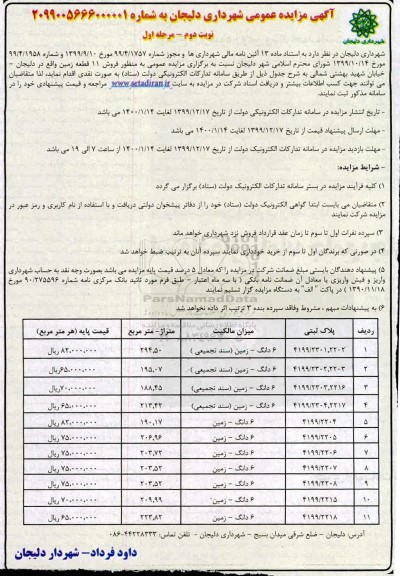 آگهی مزایده عمومی شهرداری دلیجان به شماره ۲۰۹۹۰۰۵۶۶۶۰۰۰۰۰۱
نوبت دوم - مرحله اول
شهرداری دلیجان
شهرداری دلیجان در نظر دارد به استناد ماده ۱۳ آئین نامه مالی شهرداری ها و مجوز شماره ۹۹/۴/۱۷۵۷ مورخ ۱۳۹۹/۹/۱۰ و ۹۹/۴/۱۹۵۸ مورخ
۱۳۹۹/۱۰/۱۴ شورای محترم اسلامی شهر دلیجان نسبت به برگزاری مزایده عمومی به منظور فروش ۱۱ قطعه زمین واقع در دلیجان -
خیابان شهید بهشتی شمالی به شرح جدول ذیل از طریق سامانه تدارکات الکترونیکی دولت (ستاد) به صورت نقدی اقدام نماید، لذا متقاضیان
می توانند جهت کسب اطلاعات بیشتر و دریافت اسناد شرکت در مزایده به سایت www.setadiran.ir مراجعه و قیمت پیشنهادی خود را در
سامانه مذکور ثبت نمایند.
- تاریخ انتشار مزایده در سامانه تدارکات الکترونیکی دولت از تاریخ ۱۳۹۹/۱۲/۱۷ لغایت ۱۴۰۰/۱/۱۴ می باشد
- مهلت ارسال پیشنهاد قیمت از تاریخ ۱۳۹۹/۱۲/۱۷ لغایت ۱۴۰۰/۱/۱۴ می باشد
- مهلت بازدید مزایده در سامانه تدارکات الکترونیک دولت از تاریخ ۱۳۹۹/۱۲/۱۷ لغایت ۱۴۰۰/۱/۱۴ از ساعت ۷ الی ۱۹ می باشد
- شرایط مزایده:
۱) کلیه فرآیند مزایده در بستر سامانه تدارکات الکترونیک دولت (ستاد) برگزار می گردد
۲) متقاضیان می بایست ابتدا گواهی الکترونیک دولت (ستاد) خود را از دفاتر پیشخوان دولتی دریافت و با استفاده از نام کاربری و رمز عبور در
مزایده شرکت نمایند
۳) سپرده نفرات اول تا سوم تا زمان عقد قرارداد فروش نزد شهرداری خواهد ماند
۴) در صورتی که برندگان اول تا سوم از خرید خودداری نمایند سپرده آنان به ترتیب ضبط خواهد شد
۵) پیشنهاد دهندگان بایستی مبلغ ضمانت شرکت در مزایده را که معادل ۵ درصد قیمت پایه مزایده می باشد بصورت وجه نقد به حساب شهرداری
واریز و فیش واریزی یا معادل آن ضمانت نامه بانکی ( با سه ماه اعتبار - طبق فرم مورد تائید بانک مرکزی نامه شماره ۹۰/۲۷۵۵۹۶ مورخ
۱۳۹۰/۱۱/۱۸ ) در پاکت " الف" به دستگاه مزایده گزار تسلیم نمایند
۶) به پیشنهادات مبهم ، مشروط وفاقد سپرده بنده ۳ ترتیب اثر داده نخواهد شد
ParsNamadData
ردیف پلاک ثبتی میزان مالکیت متراژ- متر مربع قیمت پایه (هر متر مربع)
۱ ۴۱۹۹/۲۳۰۱,۲۲۰۲ ۶ دانگ - زمین (سند تجمیعی ) ۲۹۴,۵۰ ۸۲,۰۰۰,۰۰۰ ریال
۲ ۴۱۹۹/۲۳۰۲,۲۲۰۳ ۶ دانگ - زمین (سند تجمیعی ) ۱۹۵,۰۷ ۶۵,۰۰۰,۰۰۰ریال
۳ ۴۱۹۹/۲۳۰۳,۲۲۱۶ ۶ دانگ - زمین (سند تجمیعی) ۱۸۸,۴۵ ۷۰,۰۰۰,۰۰۰ریال
۴ ۴۱۹۹/۲۳۰۴,۲۲۱۷ ۶ دانگ - زمین (سند تجمیعی) ۲۱۳,۴۲ ۶۵,۰۰۰,۰۰۰ ریال
۵ ۴۱۹۹/۲۲۰۴ ۶ دانگ - زمین ۱۹۰,۱۷ ۸۲,۰۰۰,۰۰۰ ریال
۶ ۴۱۹۹/۲۲۰۵ ۶ دانگ - زمین ۲۰۶,۹۶ ۷۵,۰۰۰,۰۰۰ ریال
۷ ۴۱۹۹/۲۲۰۶ ۶ دانگ - زمین ۲۰۳,۷۲ ۷۵,۰۰۰,۰۰۰ ریال
۸ ۴۱۹۹/۲۲۰۷ ۶ دانگ - زمین ۲۰۳,۵۲ ۷۵,۰۰۰,۰۰۰ ریال
۹ ۴۱۹۹/۲۲۰۸ ۶ دانگ - زمین ۲۰۳,۵۲ ۷۰,۰۰۰,۰۰۰ ریال
۱۰ ۴۱۹۹/۲۲۱۵ ۶ دانگ - زمین ۲۰۹,۹۹ ۷۰,۰۰۰,۰۰۰ ریال
۱۱ ۴۱۹۹/۲۲۱۸ ۶ دانگ - زمین ۲۲۳,۸۲ ۶۵,۰۰۰,۰۰۰ ریال
آدرس: دلیجان - ضلع شرقی میدان بسیج - شهرداری دلیجان - تلفن تماس: ۴۴۲۲۸۳۳۳-۰۸۶
داود فرداد- شهردار دلیجان